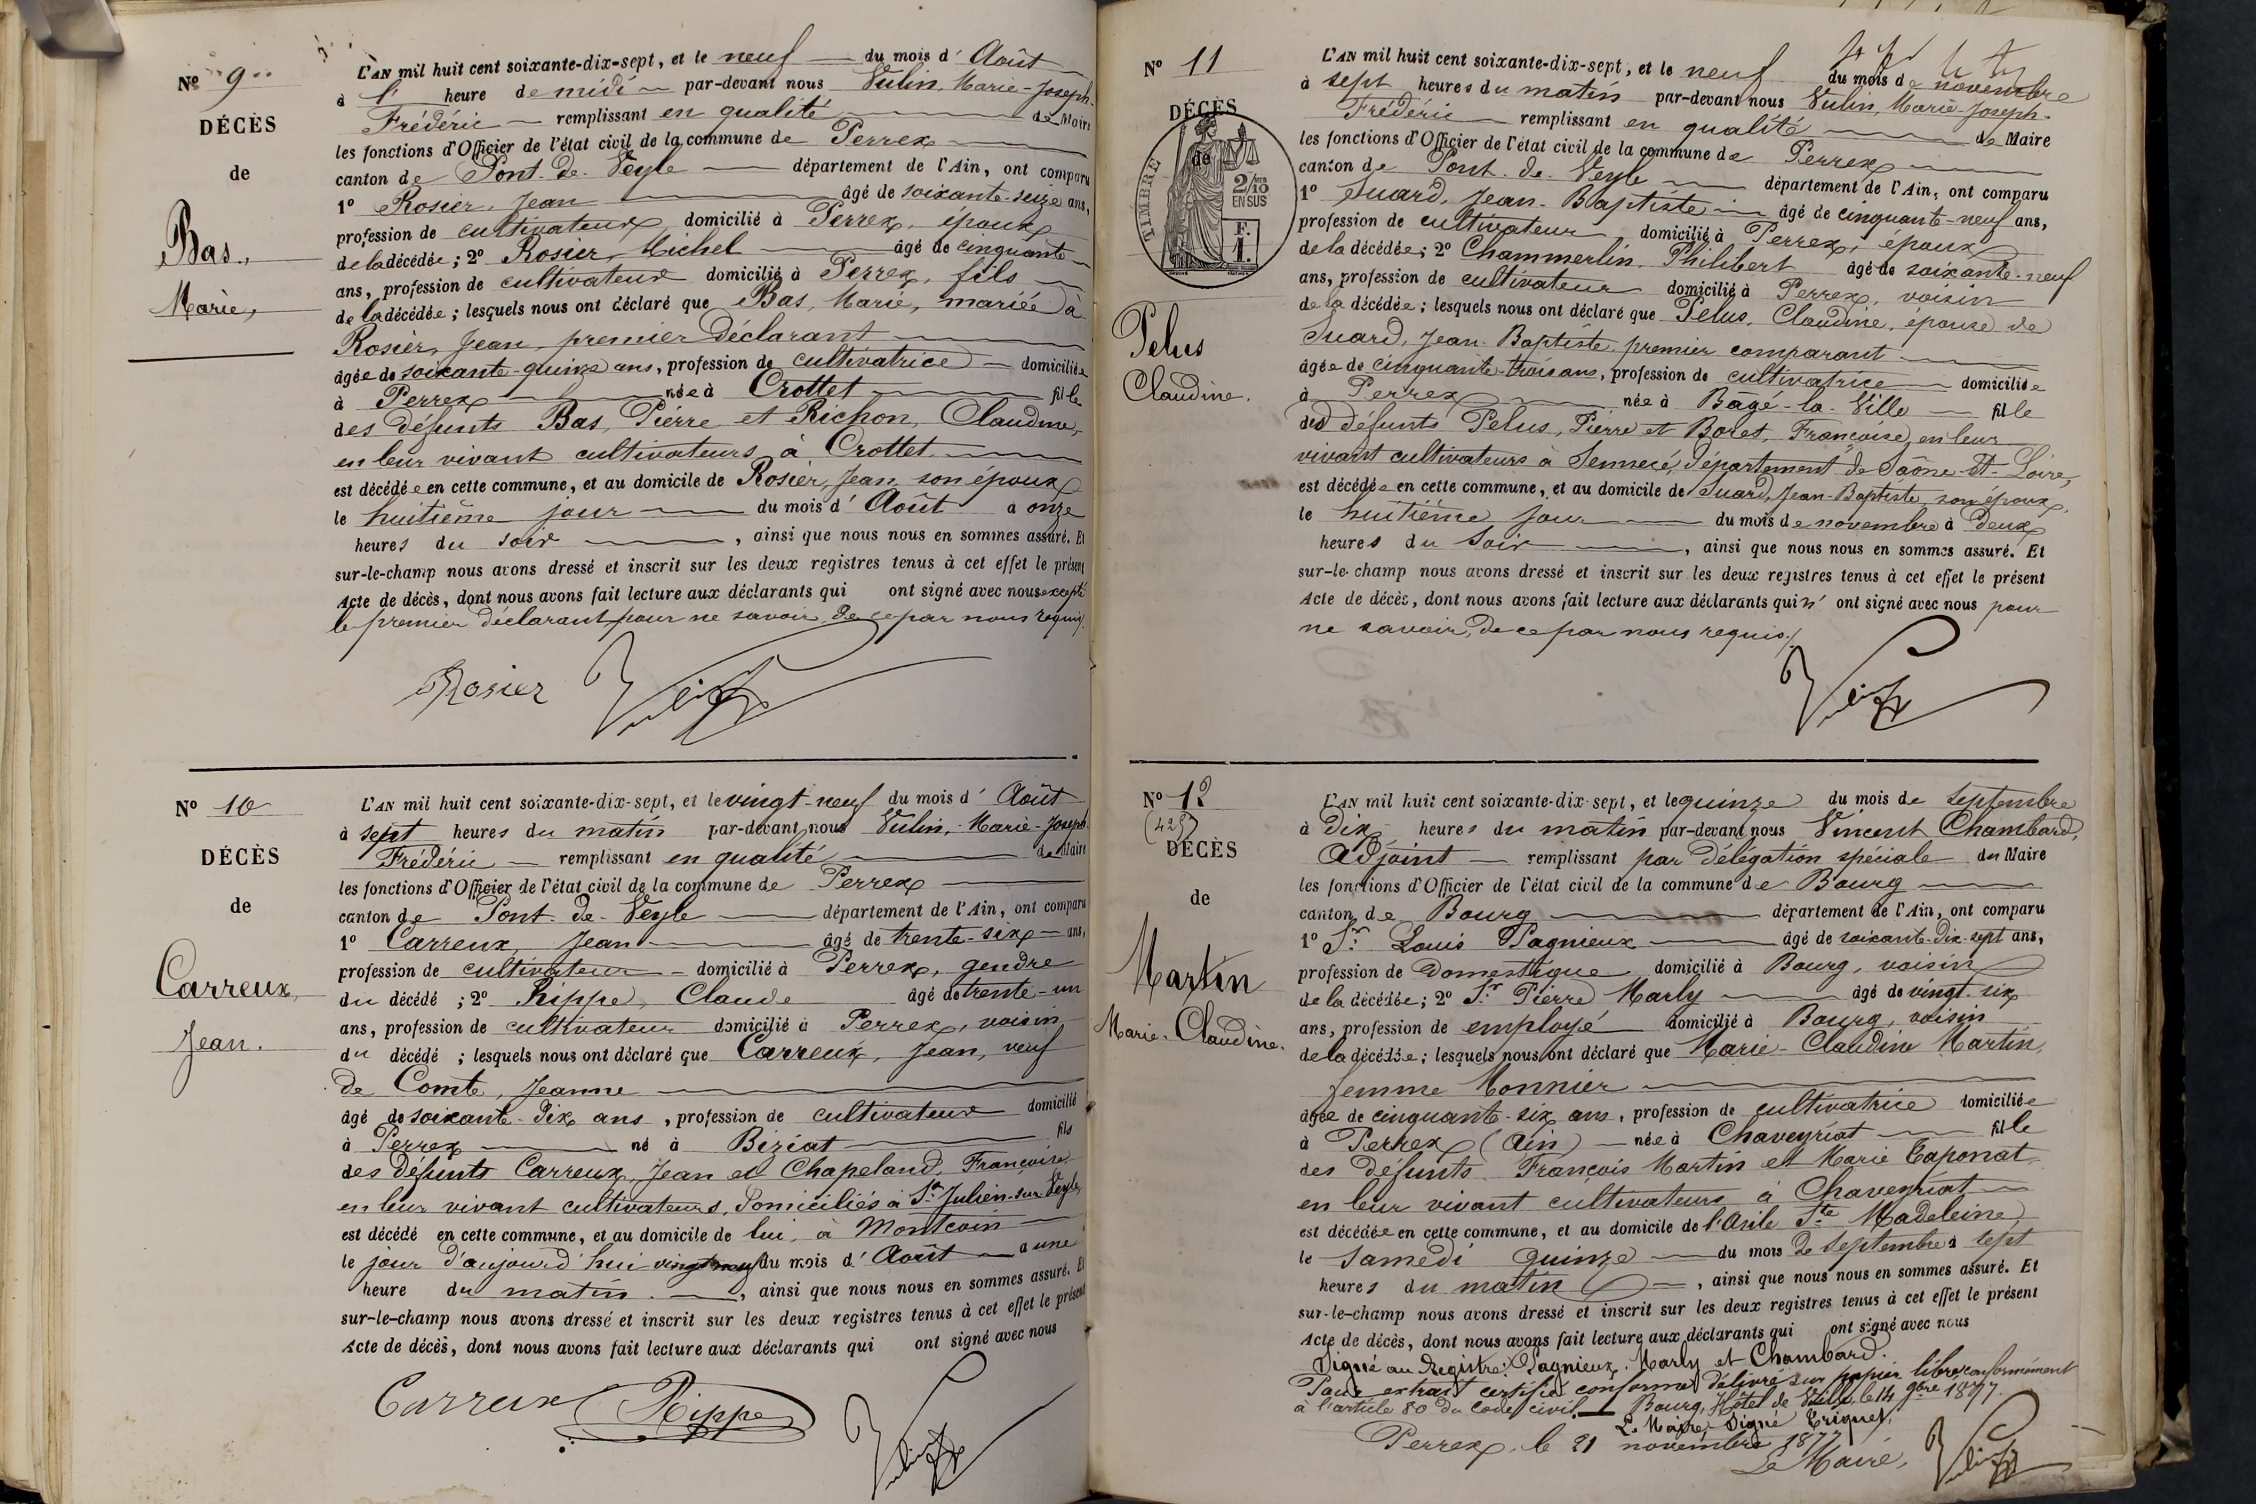 Nº 9
DÉCÈS
de
Bas,
Marie,
L'AN mil huit cent soixante-dix-sept, et le neuf du mois d' Août
à l' heure de midi par-devant nous Vulin, Marie-Joseph-
Frédéric remplissant en qualité de Maire
les fonctions d'Officier de l'état civil de la commune de Perrex
canton de Pont-de-Veyle département de l'Ain, ont comparu
1º Rosier, Jean âgé de soixante-seize ans,
profession de cultivateur domicilié à Perrex, époux
de la décédée; 2º Rosier, Michel âgé de cinquante
ans, profession de cultivateur domicilié à Perrex, fils
de la décédée; lesquels nous ont déclaré que Bas, Marie, mariée à
Rosier, Jean, premier déclarant
âgée de soixante-quinze ans, profession de cultivatrice domiciliée
à Perrex née à Crottet fille
des défunts Bas, Pierre et Richon, Claudine,
en leur vivant cultivateurs à Crottet
est décédée en cette commune, et au domicile de Rosier, Jean, son époux
le huitième jour du mois d' Août à onze
heures du soir, ainsi que nous nous en sommes assuré. Et
sur-le-champ nous avons dressé et inscrit sur les deux registres tenus à cet effet le présent
Acte de décès, dont nous avons fait lecture aux déclarants qui ont signé avec nous excepté
le premier déclarant pour ne savoir, de ce par nous requis.
Rosier Vulin
Nº 10
DÉCÈS
de
Carreux,
Jean.
L'AN mil huit cent soixante-dix-sept, et le vingt-neuf du mois d' Août
à sept heures du matin par-devant nous Vulin, Marie-Joseph
Frédéric remplissant en qualité de Maire
les fonctions d'Officier de l'état civil de la commune de Perrex
canton de Pont-de-Veyle département de l'Ain, ont comparu
1º Carreux, Jean âgé de trente-six ans,
profession de cultivateur domicilié à Perrex, gendre
du décédé; 2º Rippe, Claude âgé de trente-un
ans, profession de cultivateur domicilié à Perrex, voisin
du décédé; lesquels nous ont déclaré que Carreux, Jean, veuf
de Comte, Jeanne
âgé de soixante-dix ans, profession de cultivateur domicilié
à Perrex né à Biziat fils
des défunts Carreux, Jean et Chapeland, Françoise
en leur vivant cultivateurs, domiciliés à St Julien-sur-Veyle,
est décédé en cette commune, et au domicile de lui, à Montcoin
le jour d'aujourd'hui vingt neuf du mois d' Août à une
heure du matin, ainsi que nous nous en sommes assuré. Et
sur-le-champ nous avons dressé et inscrit sur les deux registres tenus à cet effet le présent
Acte de décès, dont nous avons fait lecture aux déclarants qui ont signé avec nous
Carreux Rippe Vulin
Nº 11
DÉCÈS
de
TIMBRE
2/10
EN SUS
F.
1.
Pelus
Claudine.
L'AN mil huit cent soixante-dix-sept, et le neuf du mois de novembre
à sept heures du matin par-devant nous Vulin, Marie-Joseph-
Frédéric remplissant en qualité de Maire
les fonctions d'Officier de l'état civil de la commune de Perrex
canton de Pont-de-Veyle département de l'Ain, ont comparu
1º Suard, Jean-Baptiste âgé de cinquante-neuf ans,
profession de cultivateur domicilié à Perrex, époux
de la décédée; 2º Chammerlin, Philibert âgé de soixante-neuf
ans, profession de cultivateur domicilié à Perrex, voisin
de la décédée; lesquels nous ont déclaré que Pelus, Claudine, épouse de
Suard, Jean-Baptiste, premier comparant
âgée de cinquante-trois ans, profession de cultivatrice domiciliée
à Perrex née à Bâgé-la-Ville fille
des défunts Pelus, Pierre et Boret, Françoise, en leur
vivant cultivateurs à Sennecé, département de Saône-et-Loire,
est décédée en cette commune, et au domicile de Suard, Jean-Baptiste, son époux,
le huitième jour du mois de novembre à deux
heures du soir, ainsi que nous nous en sommes assuré. Et
sur-le-champ nous avons dressé et inscrit sur les deux registres tenus à cet effet le présent
Acte de décès, dont nous avons fait lecture aux déclarants qui n' ont signé avec nous pour
ne savoir, de ce par nous requis./.
Vulin
Nº 12
(425)
DÉCÈS
de
Martin
Marie-Claudine.
L'AN mil huit cent soixante-dix-sept, et le quinze du mois de septembre
à Dix heures du matin par-devant nous Vincent Chambard,
Adjoint remplissant par délégation spéciale du Maire
les fonctions d'Officier de l'état civil de la commune de Bourg
canton de Bourg département de l'Ain, ont comparu
1º Sr Louis Pagnieux âgé de soixante-dix-sept ans,
profession de Domestique domicilié à Bourg, voisin
de la décédée; 2º Sr Pierre Marly âgé de vingt-six
ans, profession de employé domicilié à Bourg, voisin
de la décédée; lesquels nous ont déclaré que Marie-Claudine Martin,
femme Monnier
âgée de cinquante-six ans, profession de cultivatrice domiciliée
à Perrex (Ain) née à Chaveyriat fille
des défunts François Martin et Marie Taponat
en leur vivant cultivateurs à Chaveyriat
est décédée en cette commune, et au domicile de l'Asile Ste Madeleine,
le samedi quinze du mois de septembre à sept
heures du matin, ainsi que nous nous en sommes assuré. Et
sur-le-champ nous avons dressé et inscrit sur les deux registres tenus à cet effet le présent
Acte de décès, dont nous avons fait lecture aux déclarants qui ont signé avec nous
Signé au Registre: Pagnieux, Marly et Chambard.
Pour extrait certifié conforme délivré sur papier libre conformément
à l'article 80 du Code civil. Bourg, Hôtel de Ville, le 14 9bre 1877.
Le Maire, Signé Triquet,
Perrex, le 21 novembre 1877
Le Maire, Vulin